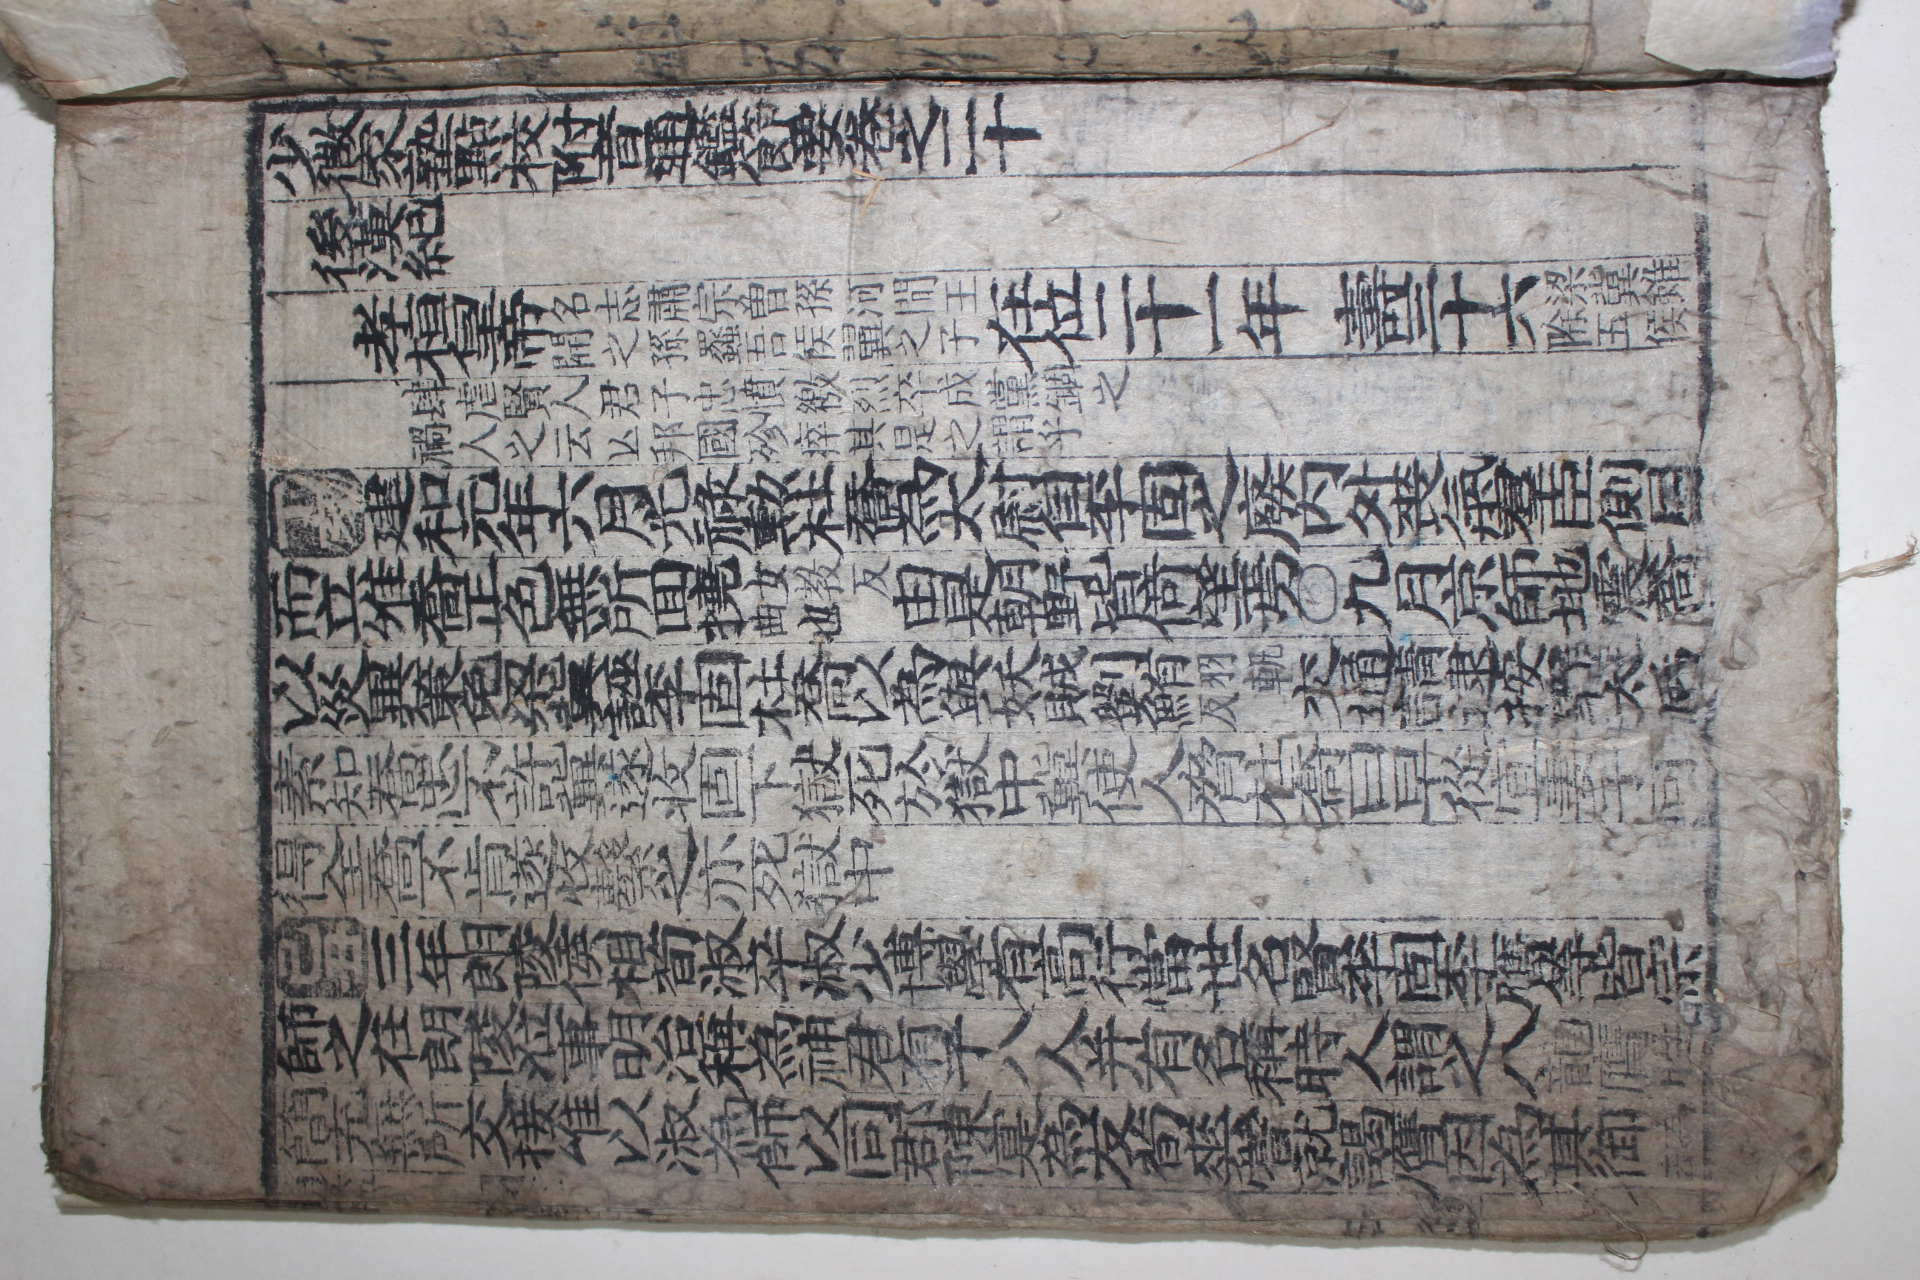 少微家塾點校附音通鑑節要卷之二十
後漢紀
孝桓皇帝 名志肅宗曾孫河間王開之孫蠡吾侯翼之子 在位二十一年 壽三十六 梁冀雖除五侯
肆虐賢人君子忠憤激烈卒成黨錮之禍人之云亡邦國殄瘁其是之謂乎
丁亥 建和元年六月光祿勳杜喬為太尉自李固之廢內外喪氣羣臣側目
而立唯喬正色無所回撓 女教反曲也 由是朝野皆倚望焉○九月京師地震喬
以災異策免梁冀誣李固杜喬以為與妖賊劉鮪 羽軌反 交通請逮按罪太后
素知喬忠不許冀遂收固下獄死於獄中冀使人脅杜喬曰早從宜妻子可
得全喬不肯遂收繫之亦死獄中
己丑 三年朗陵侯相荀淑卒淑少博學有高行當世名賢李固李膺等皆宗
師之在朗陵涖事明治稱為神君有子八人并有名稱時人謂之八龍膺性
簡亢無所交接唯以淑為師以同郡陳寔為友荀爽嘗就謁膺因為其御